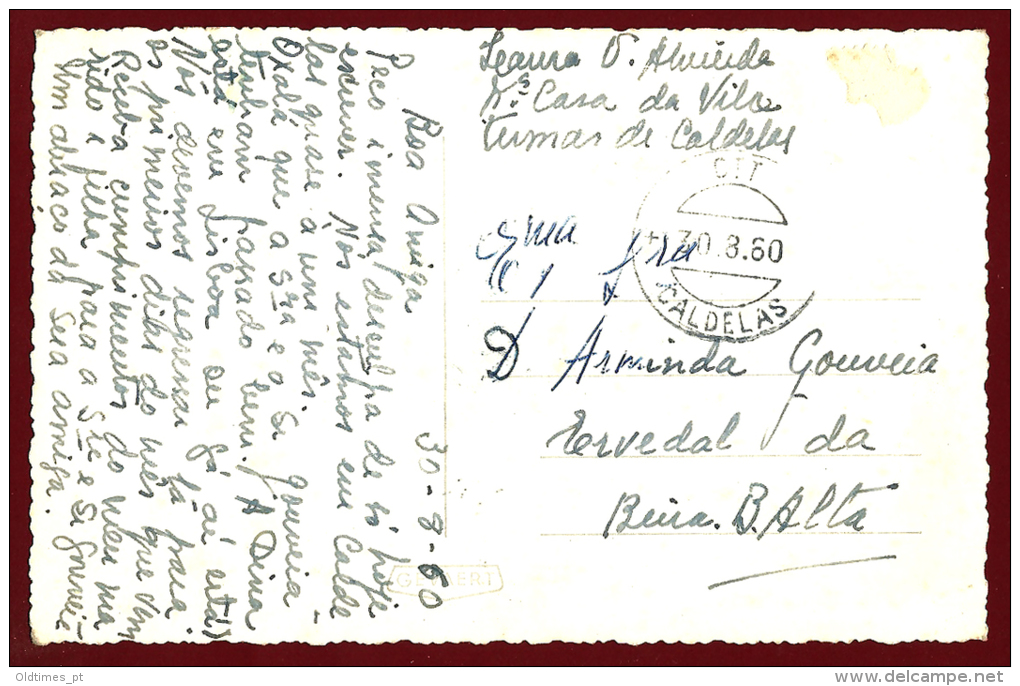 Boa Amiga 30-8-60
Peço imensa desculpa de só hoje
escrever. Nós estamos em Calde
las quase à um mês.
Oxalá que a Srª e o Sr Gouveia
tenham passado bem. A Dina
está em Lisboa ou já aí está?
Nós devemos regressar lá para
os primeiros dias do mês que vem
Receba cumprimentos do meu ma
rido e filha para a Srª e Sr Gouveia
Um abraço da sua amiga.
O. Almeida
Casa da Vila
Termas de Caldelas
CTT
30.8.60
CALDELAS
Exma Sra
D. Arminda Gouveia
Ervedal da
Beira. B. Alta
GEVAERT
Oldtimes_pt
delcampe.net